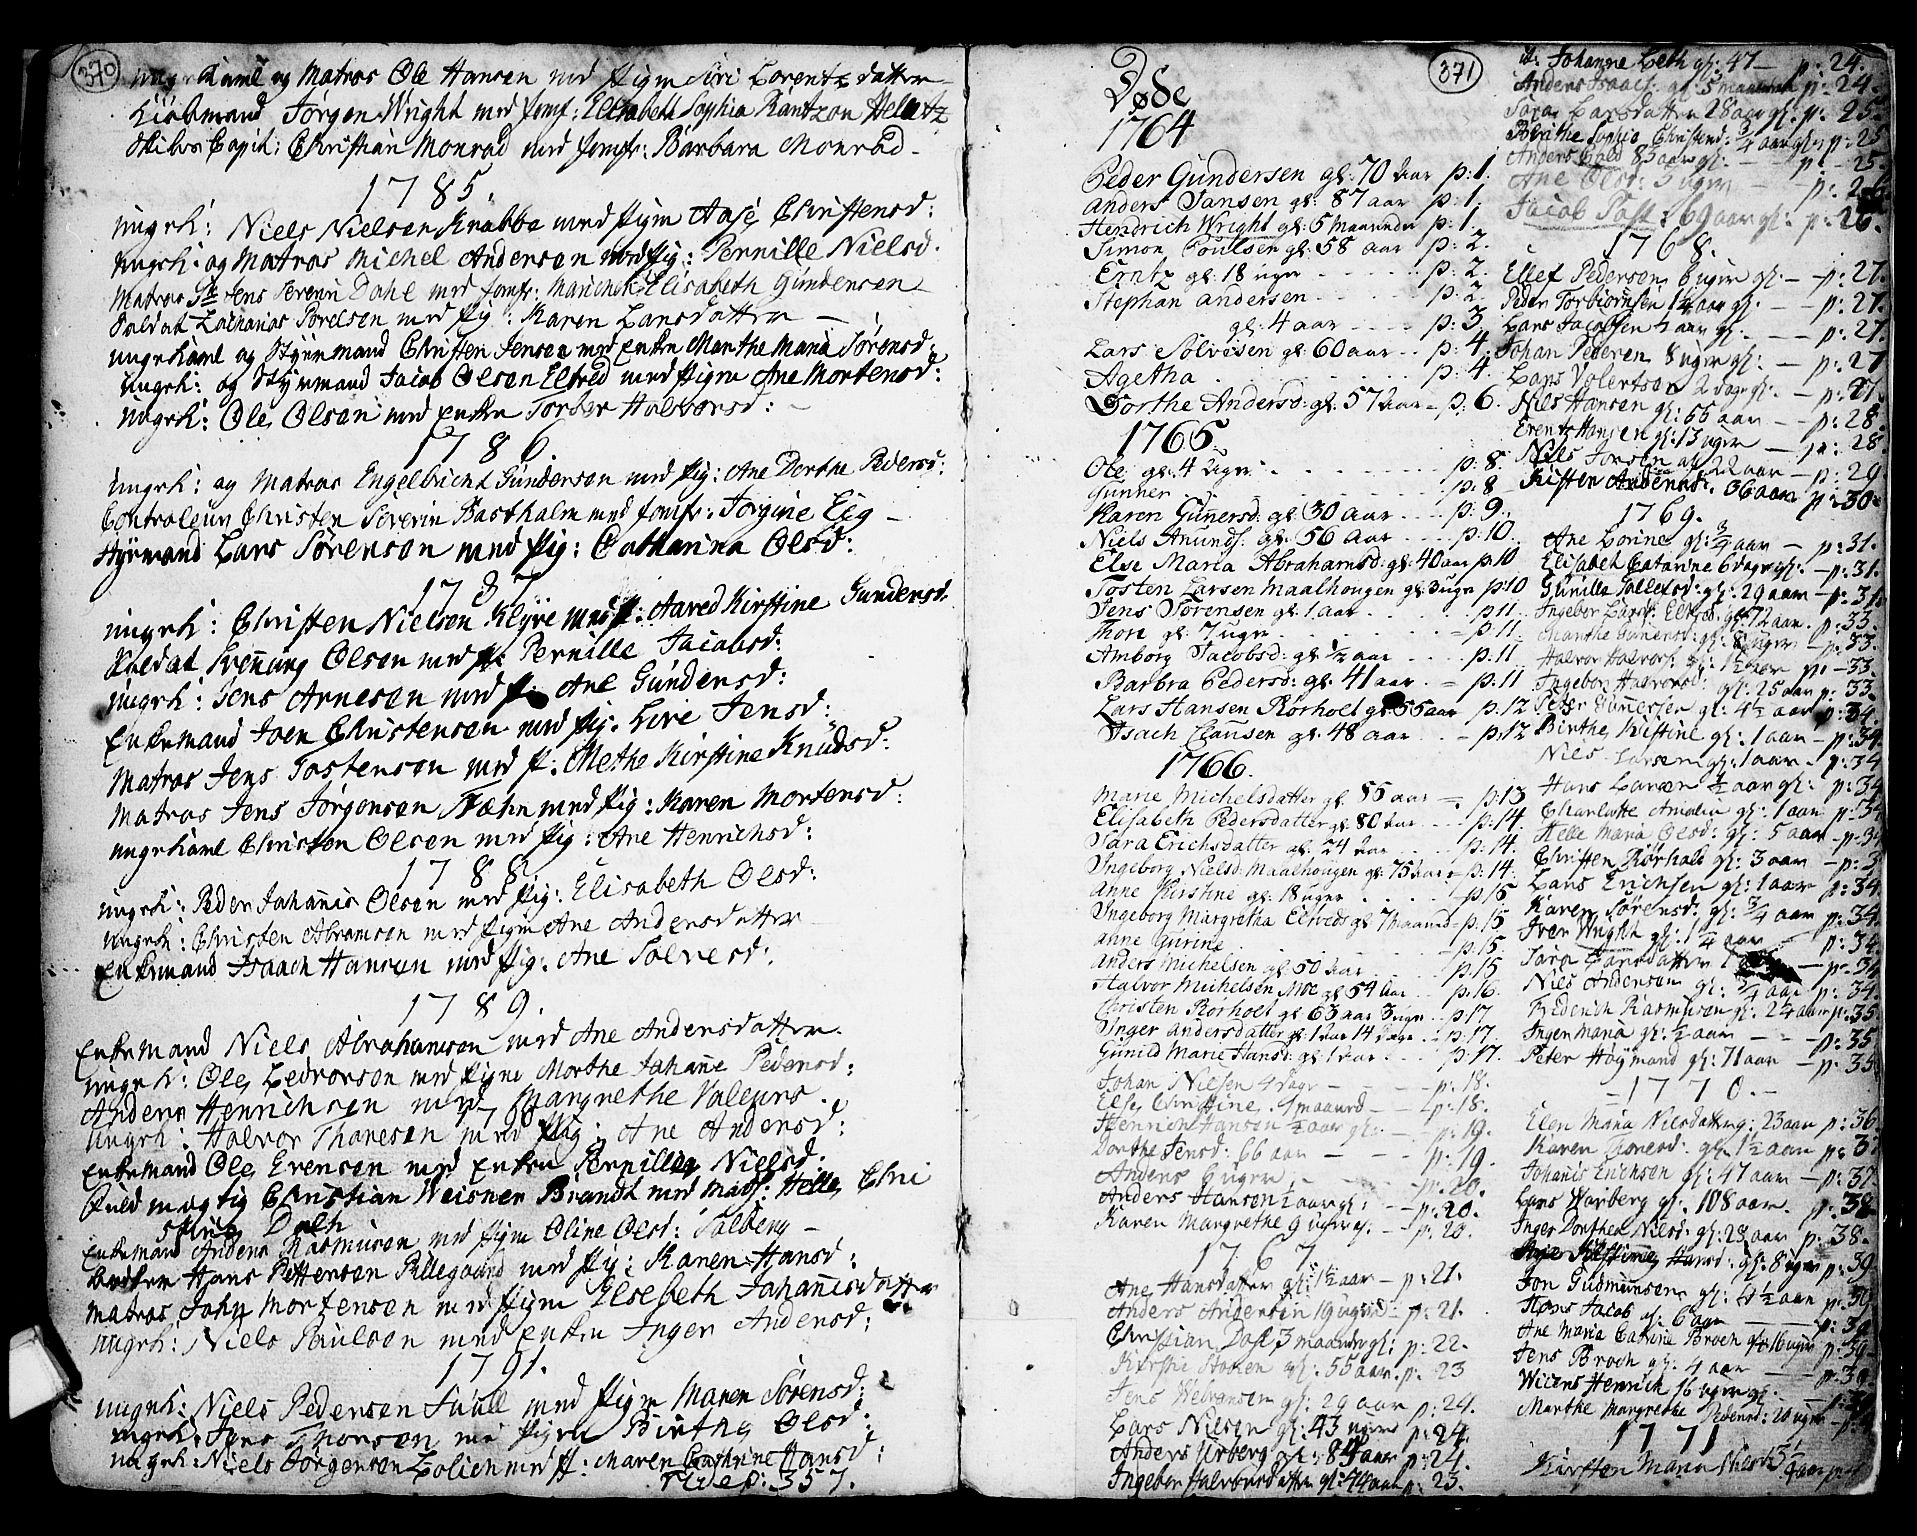 370
ungekarl og Matros Ole Hansen med pigen Siri Lorentz datter
Kiøbmand Jørgen Wright med jomf: Elisabeth Sophia Rantzon Heletz
Skibs Capit: Christian Monrad med jomfr: Barbara Monrad
1785
ungek: Niels Nielsen Krabbe med pigen Aase Christensd:
ungek: og Matros Michel Andersen med pig: Pernille Nielsd.
Matros Jens Severin Dahl med jomfr: Elisabeth Gundersen
Soldat Zacharias Torelsen med pig: Karen Larsdatter
ungekarl og Styrmand Christen Jensen med enken Marthe Maria Sørensd:
ungek: og Styrmand Jacob Olsen Eltved med pigen Ane Mortensd:
ungek: Ole Olsen med enken Torbor Halvorsd:
1786
ungek: og Matros Engelbricht Gundersen med pig: Ane Dorthe Pedersd:
Controleur Christen Severin Bastholm med jomfr: Jorgine Eeg
Styrmand Lars Sørensen med pig: Catharina Olsd:
1787
ungek: Christen Nielsen Klyve med p: Aared Kirstine Gundersd.
Soldat Svenning Olsen med p: Pernille Jacobsd:
ungek: Jens Arnesen med p: Ane Gundersd:
Enkemand Joen Christensen med pig: Live Jensd:
Matros Jens Tostensen med p: Methe Kirstine Knudsd:
Matros Jens Jørgensen Fæhn med pig: Karen Mortensd:
ungekarl Christen Olsen med pig: Ane Henrichsd:
1788
ungek: Peder Johannis Olsen med pig: Elisabeth Olsd:
ungek: Christen Abramsen med pigen Ane Andersdatter
Enkemand Isaach Hansen med pig: Ane Solvesd:
1789.
Enkemand Niels Abrahamsen med Ane Andersdatter
ungek: Ole Pedersen med pigen Morthe Johanne Pedersd:
Anders Henrichsen med Margrethe Valeurs.
1790
ungek: Halvor Thoresen med pig: Ane Andersd:
Enkemand Ole Evensen med enken Pernille Nielsd.
Fuldmægtig Christian Weisner Brandt med Mads: Helle Chri
stine Dall
Enkemand Anders Rasmusen med pigen Oline Olsd: Solberg
Hans Pettersen Pillegaard med pig: Karen Hansd:
Matros John Mortensen med pigen Elsebeth Johannisdatter
ungek: Niels Poulsen med enken Inger Andersd:
1791.
ungek: Niels Pedersen Juul med pigen Maren Sørensd:
ungek: Jens Thorsen med pigen Birthe Olsd:
ungek: Niels Jørgensen med p: Maren Cathrine Hansd:
Fidep: 357.
371
Døde
1764
Peder Gundersen gl: 70 aar p: 1.
Anders Jansen gl: 87 aar p: 1.
Hendrich Wright gl: 5 maaneder p: 1.
Simon Poulsen gl: 58 aar p: 2.
Erntz gl: 18 uger p: 2.
Stephan Andersen p: 2
gl: 4 aar p: 3
Lars Solvesen gl: 60 aar p: 4.
Agetha p: 4
Dorthe Andersd: gl: 57 aar p: 6.
1765
Ole gl: 4 uger p: 8.
Gunner p: 8
Karen Gunersd: gl: 30 aar p: 9.
Niels Anunds: gl: 56 aar p: 10.
Else Maria Abrahamsd: gl: 40 aar p: 10
Tosten Larsen Maalhougen gl: 3 uger p: 10
Jens Sørensen gl: 1 aar p: 11.
Thore gl: 7 uger p: 11.
Amborg Jacobsd: gl: ½ aar p: 11
Barbra Pedersd: gl: 41 aar p: 11
Lars Hansen Rørholt gl: 55 aar p: 12
Isach Clausen gl: 48 aar p: 12
1766.
Marie Michelsdatter gl: 85 aar p: 13
Elisabeth Pedersdatter gl: 80 aar p: 14.
Sara Erichsdatter gl: 24 aar p: 14.
Ingeborg Nielsd: Maalhougen gl: 75 aar p: 14.
Anne Kirstine gl: 18 uger p: 15
Ingeborg Margretha Eltveds gl: 7 maaned p: 15
Anne Gurine p: 15
Anders Michelsen gl: 50 aar p: 15
Halvor Michelsen Moe gl: 54 aar p: 16.
Christen Rørholt gl: 63 aar 3 uger p: 17
Inger Andersdatter gl: 1 aar 14 dage p: 17.
Gunild Marie Hansd: gl: 1 aar p: 17.
Johan Nielsen 4 dage p: 18.
Else Christine 1 maaned p: 18.
Henrich Hansen ½ aar gl: p: 19.
Dorthe Jensd: 66 aar p: 19.
Anders 6 uger p: 20.
Anders Hansen ½ aar gl: p: 20.
Karen Margrethe 9 uger gl. p: 20.
1767
Ane Hansdatter gl: 1½ aar p: 21.
Anders Andersen 19 uger p: 21.
Christian Dosl 3 maaneder gl: p: 22.
Kirstie Holten gl: 55 aar p: 23
Jens Wetversen gl: 29 aar p: 24.
Lars Nilsen gl: 43 uger p: 24.
Anders Urberg gl: 84 aar p: 24.
Ingebor Halvorsdatter gl: 44 aar p: 23.
it: Johanne Leth gl: 47 p: 24.
Anders Isaacs: gl: 5 maaneder p: 24.
Sara Larsdatter 28 aar gl. p: 25.
Birthe Sophia Christensd: ¾ aar gl. p: 25
Anders Eveld 85 aar gl: p: 25.
Ane Olsd: 3 uger p: 26
Jacob Post 69 aar gl: p: 26.
1768.
Ellef Pedersen 6 uger gl. p: 27.
Peder Torbiornsen 1¼ aar gl. p: 27.
Lars Jacobsen ½ aar gl. p: 27.
Johan Pedersen 8 uger gl: p: 27
Lars Volertsen 2 dage gl. p: 27.
Nils Hansen gl: 55 aar p: 28.
Erent Hansen gl: 13 uger p: 28
Nils Jonsen gl: 22 aar p: 29
Kisten Andersd: 36 aar p: 30.
1769.
Ane Lorine gl: ¾ aar p: 31.
Elisabet Catarine 6 dage gl. p: 31.
Gunille Sollefsd: gl: 29 aar p: 31.
Ingebor Larsd: Eltved: gl: 72 aar. p: 33.
Marthe Gunersd: gl: 8 uger p: 33.
Halvor Halvors: gl: 1½ aar p: 33.
Ingebor Halvorsd: gl: 25 aar p: 33.
Peter Gunnersen gl: 4½ aar p: 34.
Birthe Kistine gl: 1 aar p: 34.
Niels Larsen gl: 1 aar p: 34
Hans Larsen ½ aar gl: p: 34
Charlotte Amalia gl: 1 aar p: 34
Helle Maria Olsd: gl: 5 aar p: 34
Christen Rørholt gl: 3 aar p: 3
Lars Erichsen gl: 1 aar p: 34
Karen Sørensd: gl: ¾ aar p: 34.
Iver Wright gl: 1¼ aar p: 34.
Sara Larsdatter p: 34
Niels Andersen gl: ¾ aar p: 34.
Frederich Rasmusen gl: 2¼ aar p: 35.
Inger Maria gl: ½ aar p: 35
Peter Høymand gl: 71 aar p: 35
1770.
Elen Maria Nilsdatter g: 23 aar p: 36.
Karen Toresd: gl: 1½ aar p: 3
Johanis Erichsen gl: 47 aar p: 37
Lars Warberg gl: 108 aar p: 38
Inger Dorthea Nilsd: gl: 28 aar p: 38.
Inger Kirstine Hansd: gl: 8 uger p: 39
Jon Gudmunsen gl: 4½ aar p: 39
Hans Jacob gl: 6 aar p: 39
Ane Maria Catrine Broch gl: 16 uger p: 39
Jens Broch gl: 4 aar p: 39.
Wilens Henrich 16 uger gl. p: 39
Marthe Margrethe Pedersd: 20 uger p:
1771
Kirsten Maria